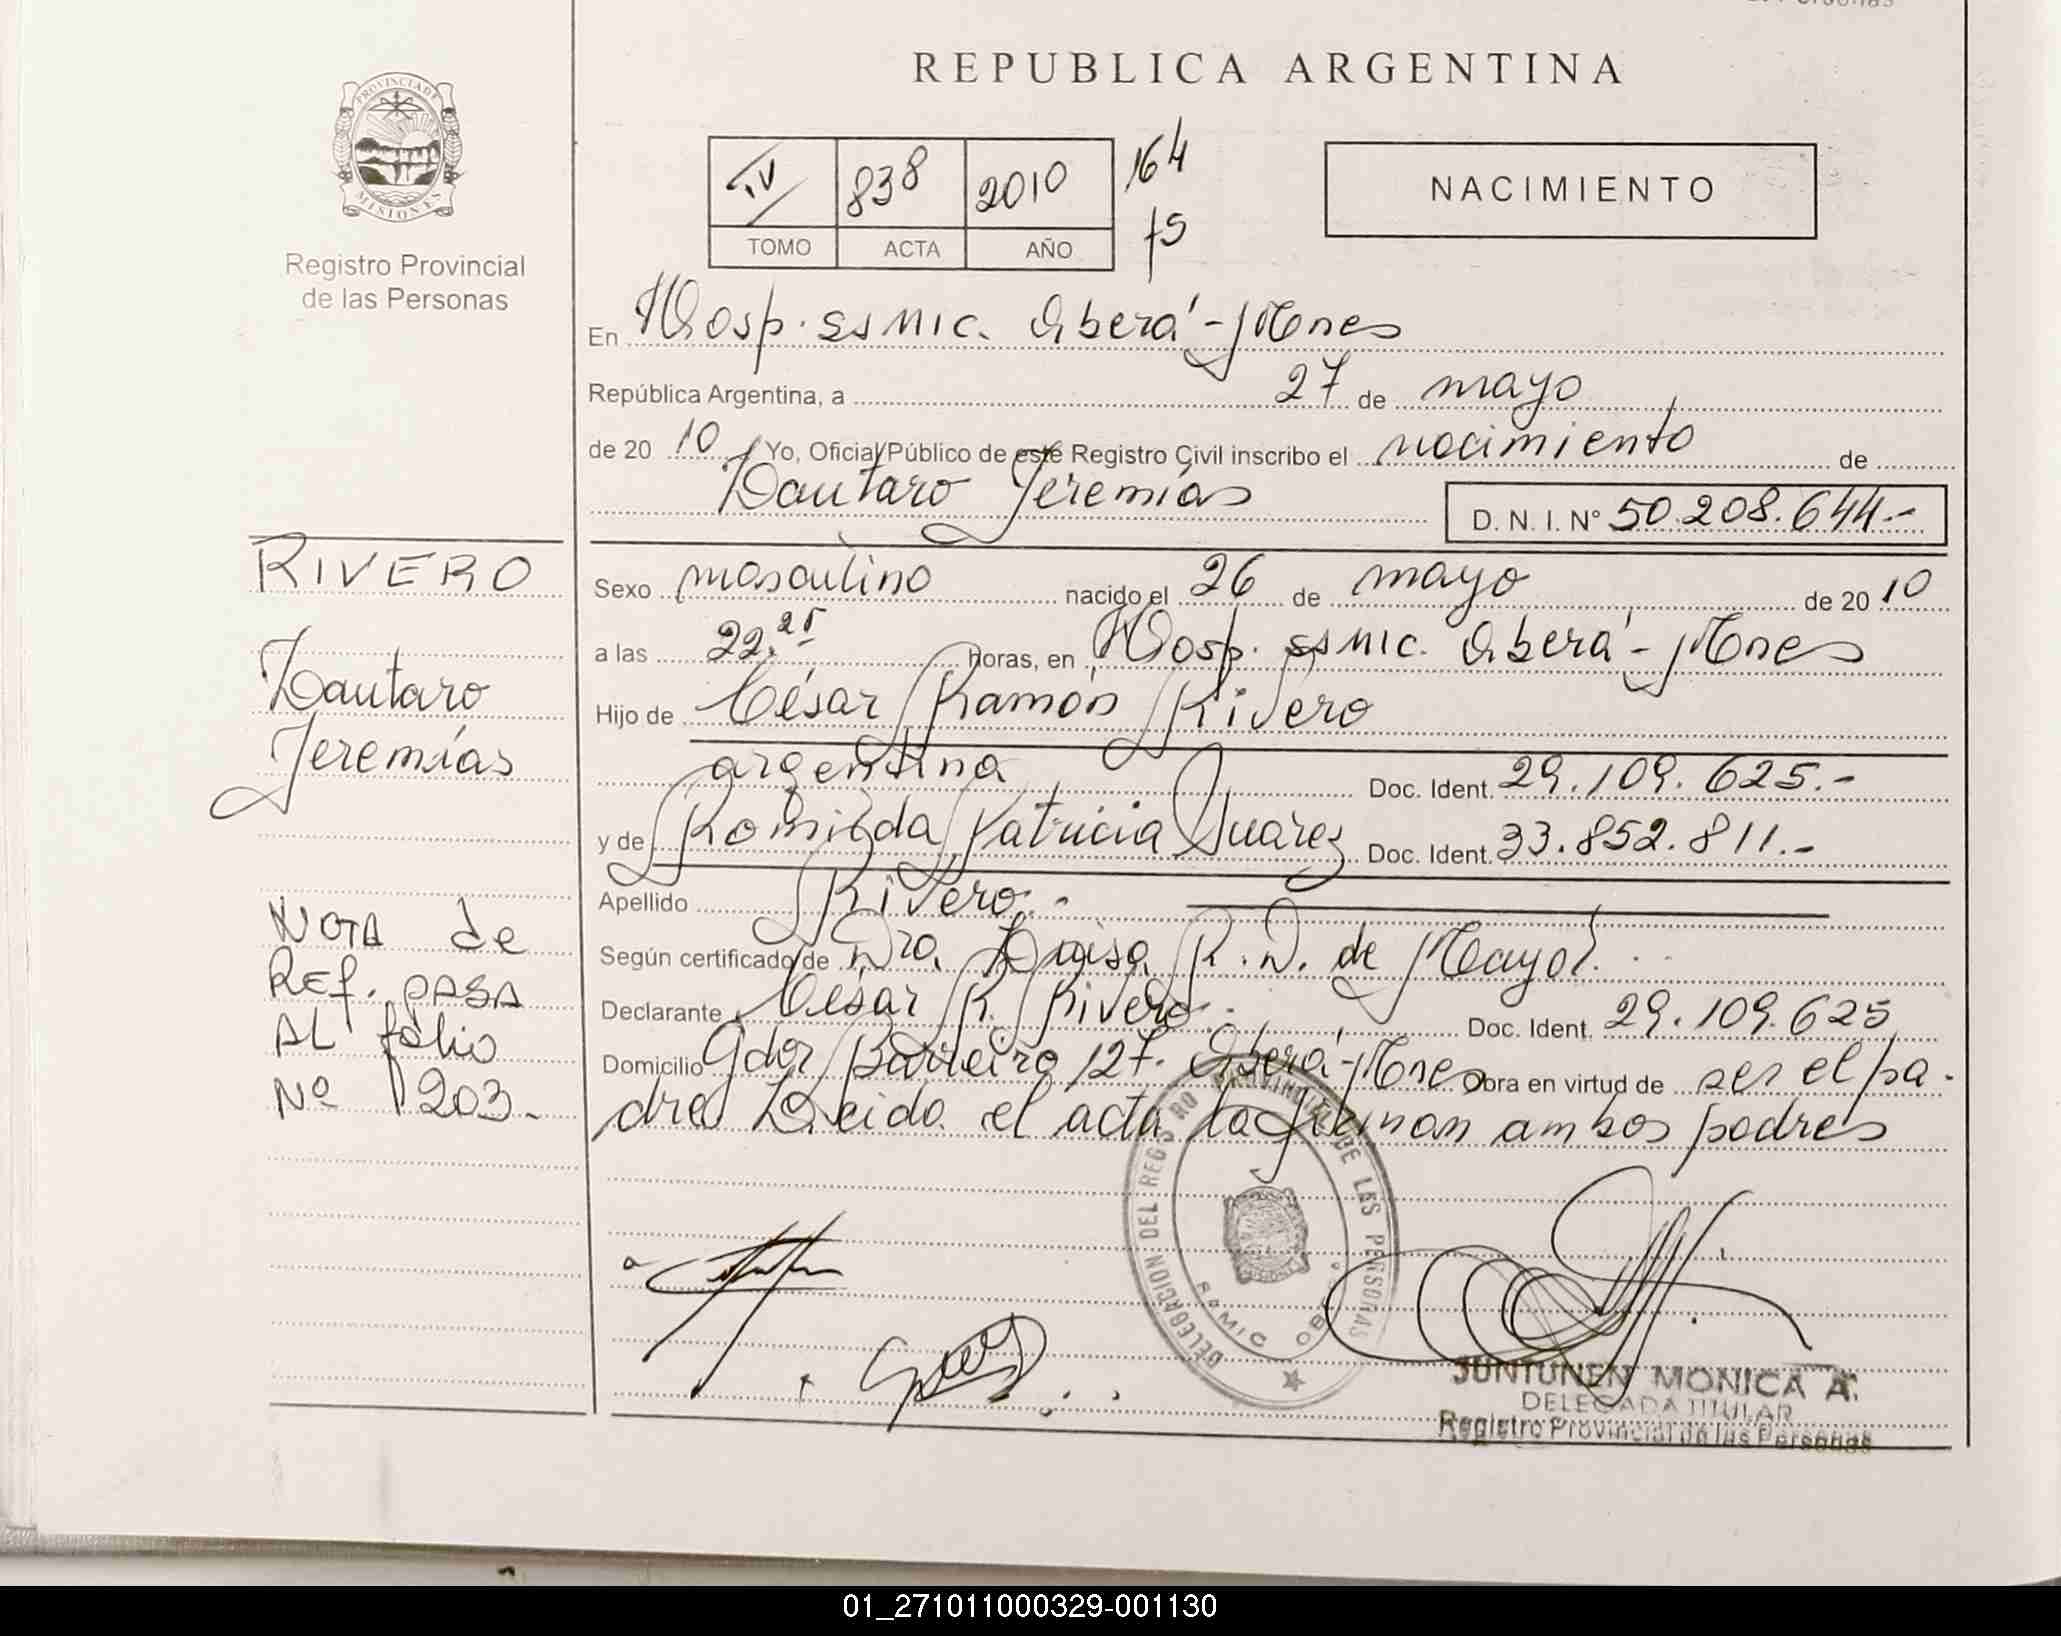 REPUBLICA ARGENTINA
PROVINCIA DE
MISIONES
Registro Provincial
de las Personas
IV 838 2010 164
TOMO ACTA AÑO 75
NACIMIENTO
En Hosp. SSMIC. Oberá - Mnes
República Argentina, a 27 de mayo
de 20 10 Yo, Oficial Público de este Registro Civil inscribo el nacimiento de
Lautaro Jeremías D. N. I. Nº 50.208.644.-
RIVERO
Lautaro
Jeremías
NOTA de
REF. PASA
AL folio
Nº 203.-
Sexo masculino nacido el 26 de mayo de 20 10
a las 22.25 Horas, en Hosp. SSMIC. Oberá - Mnes
Hijo de César Ramón Rivero
argentina Doc. Ident. 29.109.625.-
y de Romilda Patricia Suarez Doc. Ident. 33.852.811.-
Apellido Rivero.-
Según certificado de Dra. R. D. de Mayol.
Declarante César R. Rivero.- Doc. Ident. 29.109.625
Domicilio Gdor Barreiro 127. Oberá - Mnes Obra en virtud de ser el pa-
dre Leida el acta la firman ambos padres
DELEGACION DEL REGISTRO PROVINCIAL DE LAS PERSONAS
JUNTUNEN MONICA A.
DELEGADA TITULAR
Registro Provincial de las Personas
01_271011000329-001130